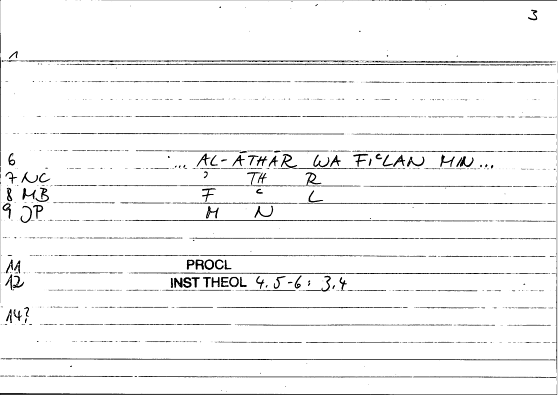 3
1
6 ... AL-ĀTHĀR WA FIʿLAN MIN...
7 NC ʾ TH R
8 MB F ʿ L
9 JP M N
11 PROCL
12 INST THEOL 4.5-6: 3.4
14?